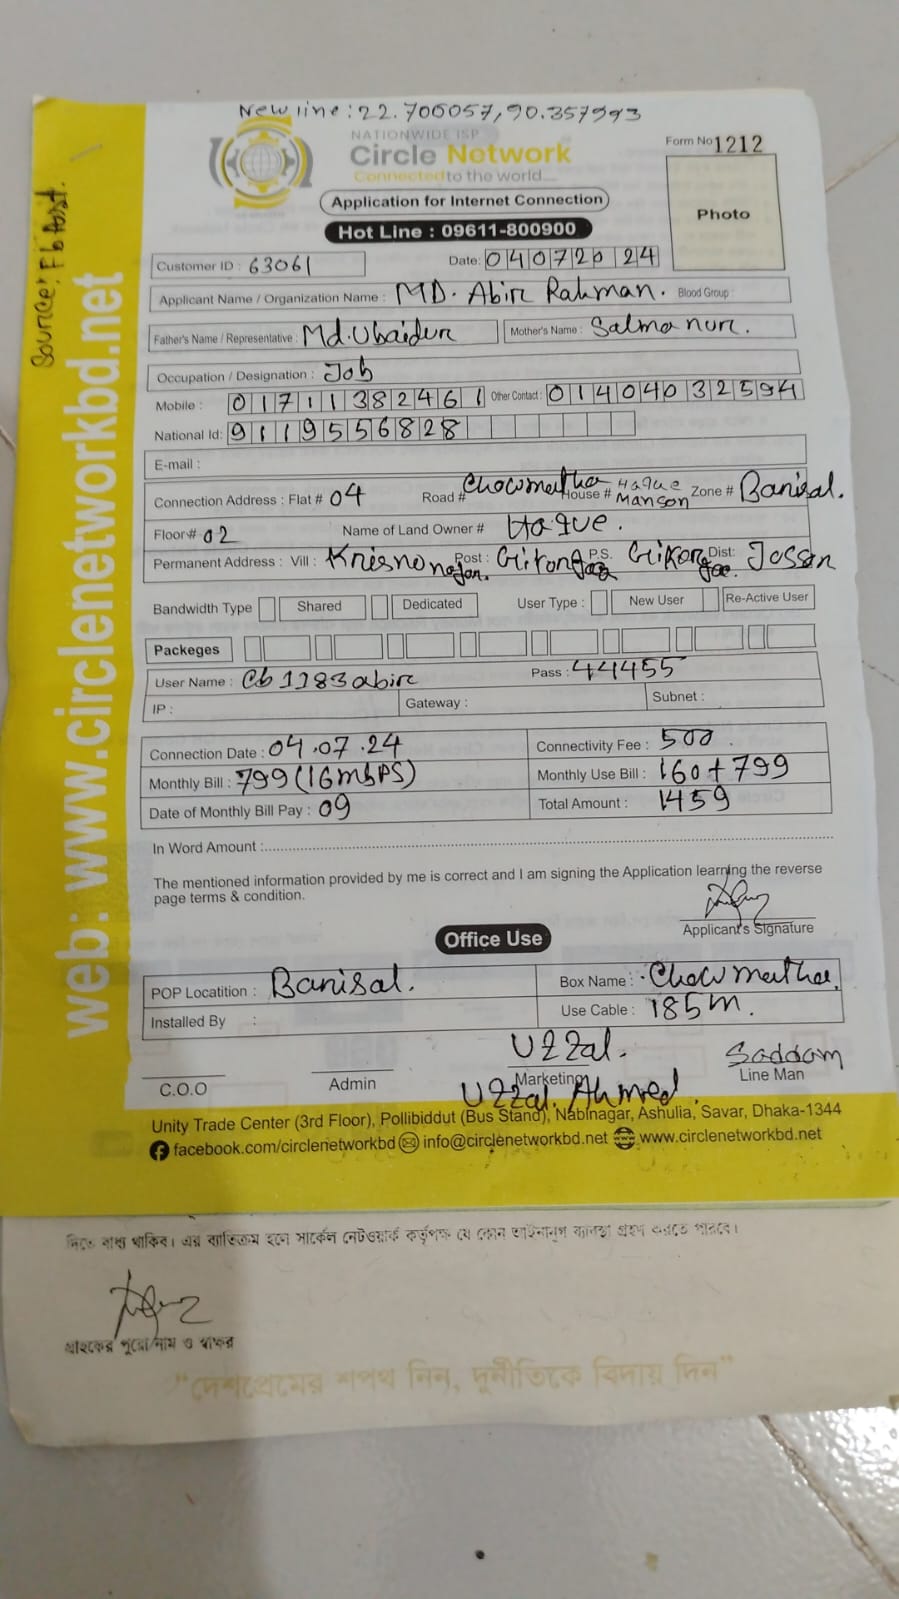 New line: 22.706057,90.357993
NATIONWIDE ISP
Circle Network
Connected to the world
Form No 1212
Photo
Application for Internet Connection
Hot Line : 09611-800900
Source: Fb Post.
web: www.circlenetworkbd.net
Customer ID : 63061 Date: 04072024
Applicant Name / Organization Name : MD. Abir Rahman. Blood Group :
Father's Name / Representative : Md. Ubaidur Mother's Name : Salma nur.
Occupation / Designation : Job
Mobile : 01711382461 Other Contact : 01404032594
National Id: 9119556828
E-mail :
Connection Address : Flat # 04 Road # Chowmatha House # Haque Manson Zone # Barisal.
Floor # 02 Name of Land Owner # Haque.
Permanent Address : Vill : Post : P.S. Dist:
Bandwidth Type Shared Dedicated User Type : New User Re-Active User
Packeges
User Name : Cb1183abir Pass : 44455
IP : Gateway : Subnet :
Connection Date : 04.07.24 Connectivity Fee : 500.
Monthly Bill : 799 (16mbPS) Monthly Use Bill : 160+799
Date of Monthly Bill Pay : 09 Total Amount : 1459
In Word Amount :
The mentioned information provided by me is correct and I am signing the Application learning the reverse
page terms & condition.
Applicant's Signature
Office Use
POP Locatition : Barisal. Box Name : Chow matha.
Installed By : Use Cable : 185m.
Uzzal. Saddam
C.O.O Admin Marketing Line Man
Uzzal. Ahmed
Unity Trade Center (3rd Floor), Pollibiddut (Bus Stand), Nabinagar, Ashulia, Savar, Dhaka-1344
facebook.com/circlenetworkbd info@circlenetworkbd.net www.circlenetworkbd.net
দিতে বাধ্য থাকিব। এর ব্যতিক্রম হলে সার্কেল নেটওয়ার্ক কর্তৃপক্ষ যে কোন আইনানুগ ব্যবস্থা গ্রহণ করতে পারবে।
গ্রাহকের পুরো নাম ও স্বাক্ষর
“দেশপ্রেমের শপথ নিন, দুর্নীতিকে বিদায় দিন”